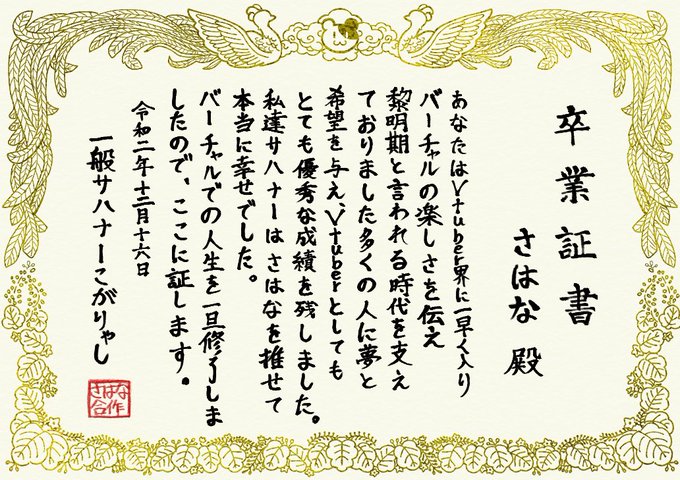 卒業証書
さはな 殿
あなたはVtuber界に一早く入り
バーチャルの楽しさを伝え
黎明期と言われる時代を支え
ておりました多くの人に夢と
希望を与え、Vtuberとしても
とても優秀な成績を残しました。
私達サハナーはさはなを推せて
本当に幸せでした。
バーチャルでの人生を一旦修了しま
したので、ここに証します。
令和二年十二月十六日
一般サハナーこがりゃし
さはな
合作